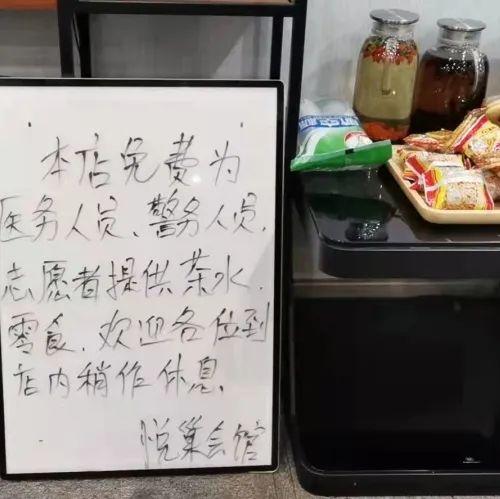 本店免费为
医务人员、警务人员、
志愿者提供茶水、
零食、欢迎各位到
店内稍作休息。
悦巢会馆